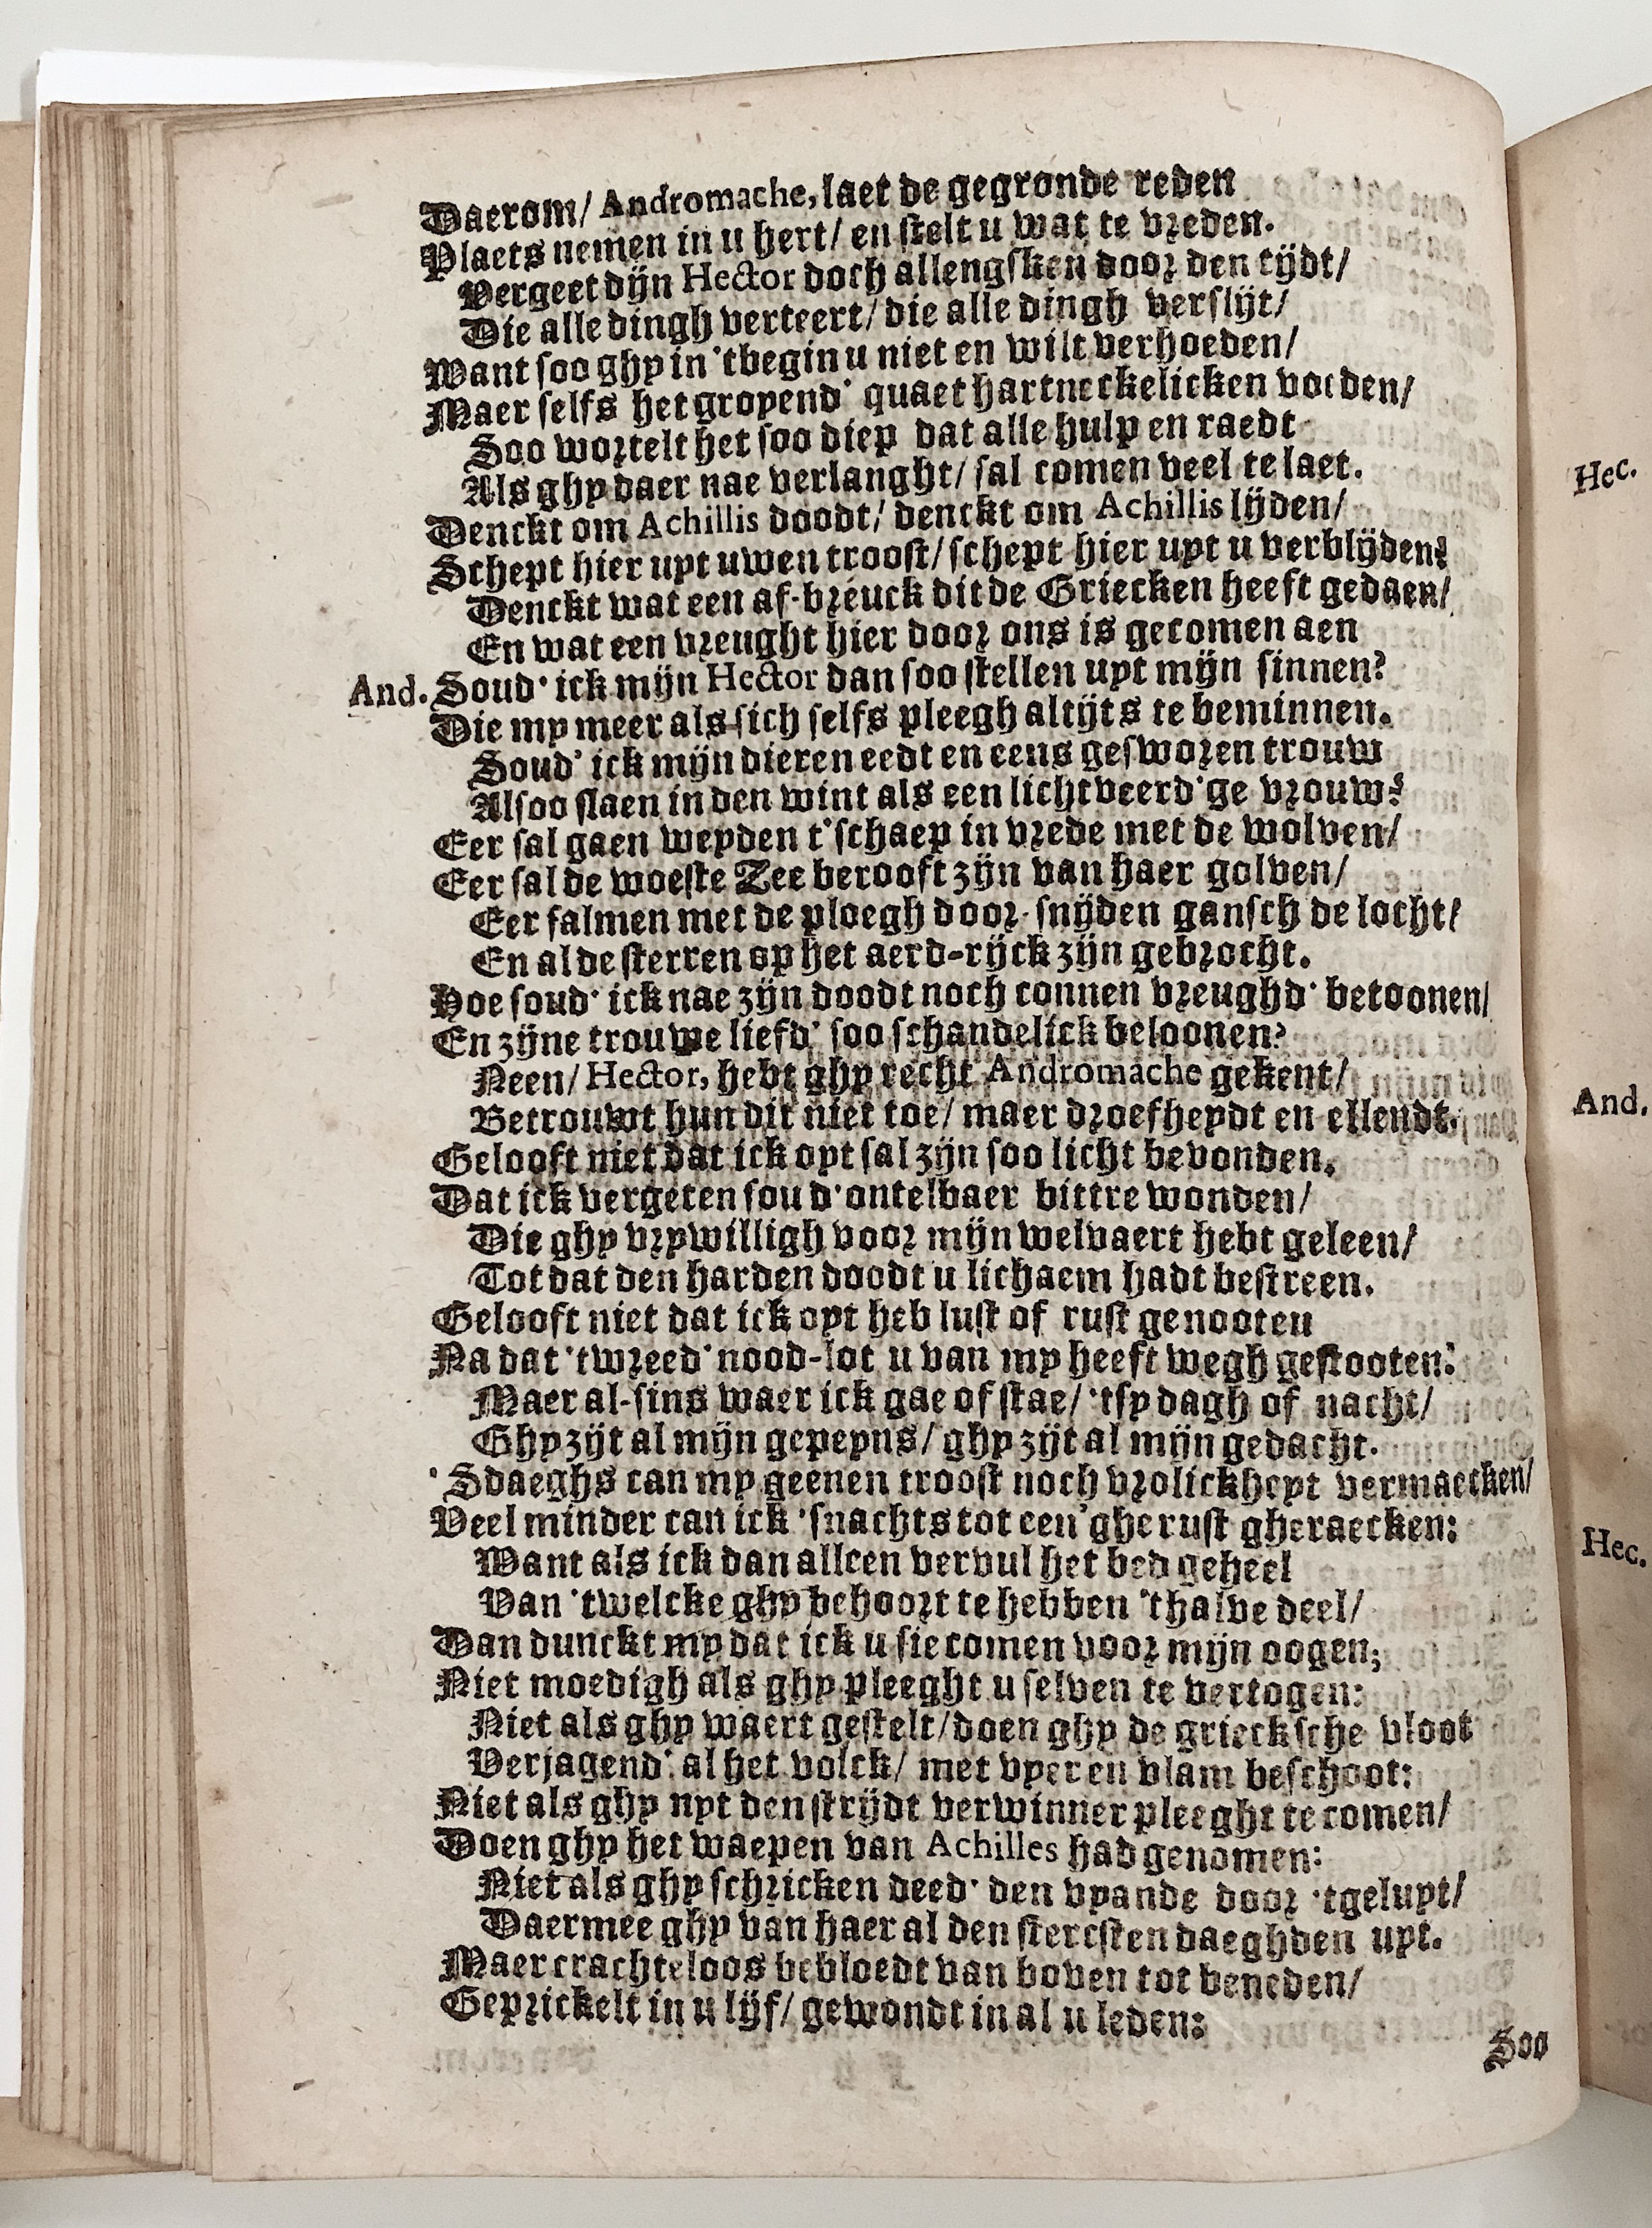 Daerom/ Andromache, laet de gegronde reden
Plaets nemen in u hert/ en stelt u wat te vreden.
Vergeet dijn Hector doch allengsken door den tijdt/
Die alle dingh verteert/ die alle dingh verslijt/
Want soo ghy in 'tbegin u niet en wilt verhoeden/
Maer selfs het groyend' quaet hartneckelicken voeden/
Soo wortelt het soo diep dat alle hulp en raedt
Als ghy daer nae verlanght/ sal comen veel te laet.
Denckt om Achillis doodt/ denckt om Achillis lijden/
Schept hier uyt uwen troost/ schept hier uyt u verblijden:
Denckt wat een af-breuck dit de Griecken heeft gedaen/
En wat een vreught hier door ons is gecomen aen
And. Soud' ick mijn Hector dan soo stellen uyt mijn sinnen?
Die my meer als sich selfs pleegh altijts te beminnen.
Soud' ick mijn dieren eedt en eens gesworen trouw
Alsoo slaen in den wint als een lichtveerd'ge vrouw?
Eer sal gaen weyden t'schaep in vrede met de wolven/
Eer sal de woeste Zee berooft zijn van haer golven/
Eer salmen met de ploegh door-snijden gansch de locht/
En al de sterren op het aerd-rijck zijn gebrocht.
Hoe soud' ick nae zijn doodt noch connen vreughd' betoonen/
En zijne trouwe liefd' soo schandelick beloonen?
Neen/ Hector, hebt ghy recht Andromache gekent/
Betrouwt hun dit niet toe/ maer droefheydt en ellendt.
Gelooft niet dat ick oyt sal zijn soo licht bevonden,
Dat ick vergeten soud' ontelbaer bittre wonden/
Die ghy vrywilligh voor mijn welvaert hebt geleen/
Tot dat den harden doodt u lichaem hadt bestreen.
Gelooft niet dat ick oyt heb lust of rust genooten
Na dat 'twreed' nood-lot u van my heeft wegh gestooten:
Maer al-sins waer ick gae of stae/ 'tsy dagh of nacht/
Ghy zijt al mijn gepeyns/ ghy zijt al mijn gedacht.
'Sdaeghs can my geenen troost noch vrolickheyt vermaecken/
Veel minder can ick 'snachts tot een'ghe rust gheraecken:
Want als ick dan alleen vervul het bed geheel
Van 'twelcke ghy behoort te hebben 'thalve deel/
Dan dunckt my dat ick u sie comen voor mijn oogen;
Niet moedigh als ghy pleeght u selven te vertogen:
Niet als ghy waert gestelt/ doen ghy de griecksche vloot
Verjagend' al het volck/ met vyer en vlam beschoot:
Niet als ghy nyt den strijdt verwinner pleeght te comen/
Doen ghy het waepen van Achilles had genomen:
Niet als ghy schricken deed' den vyande door 'tgeluyt/
Daermee ghy van haer al den stercsten daeghden uyt.
Maer crachteloos bebloedt van boven tot beneden/
Geprickelt in u lijf/ gewondt in al u leden:
Soo
Hec.
And.
Hec.